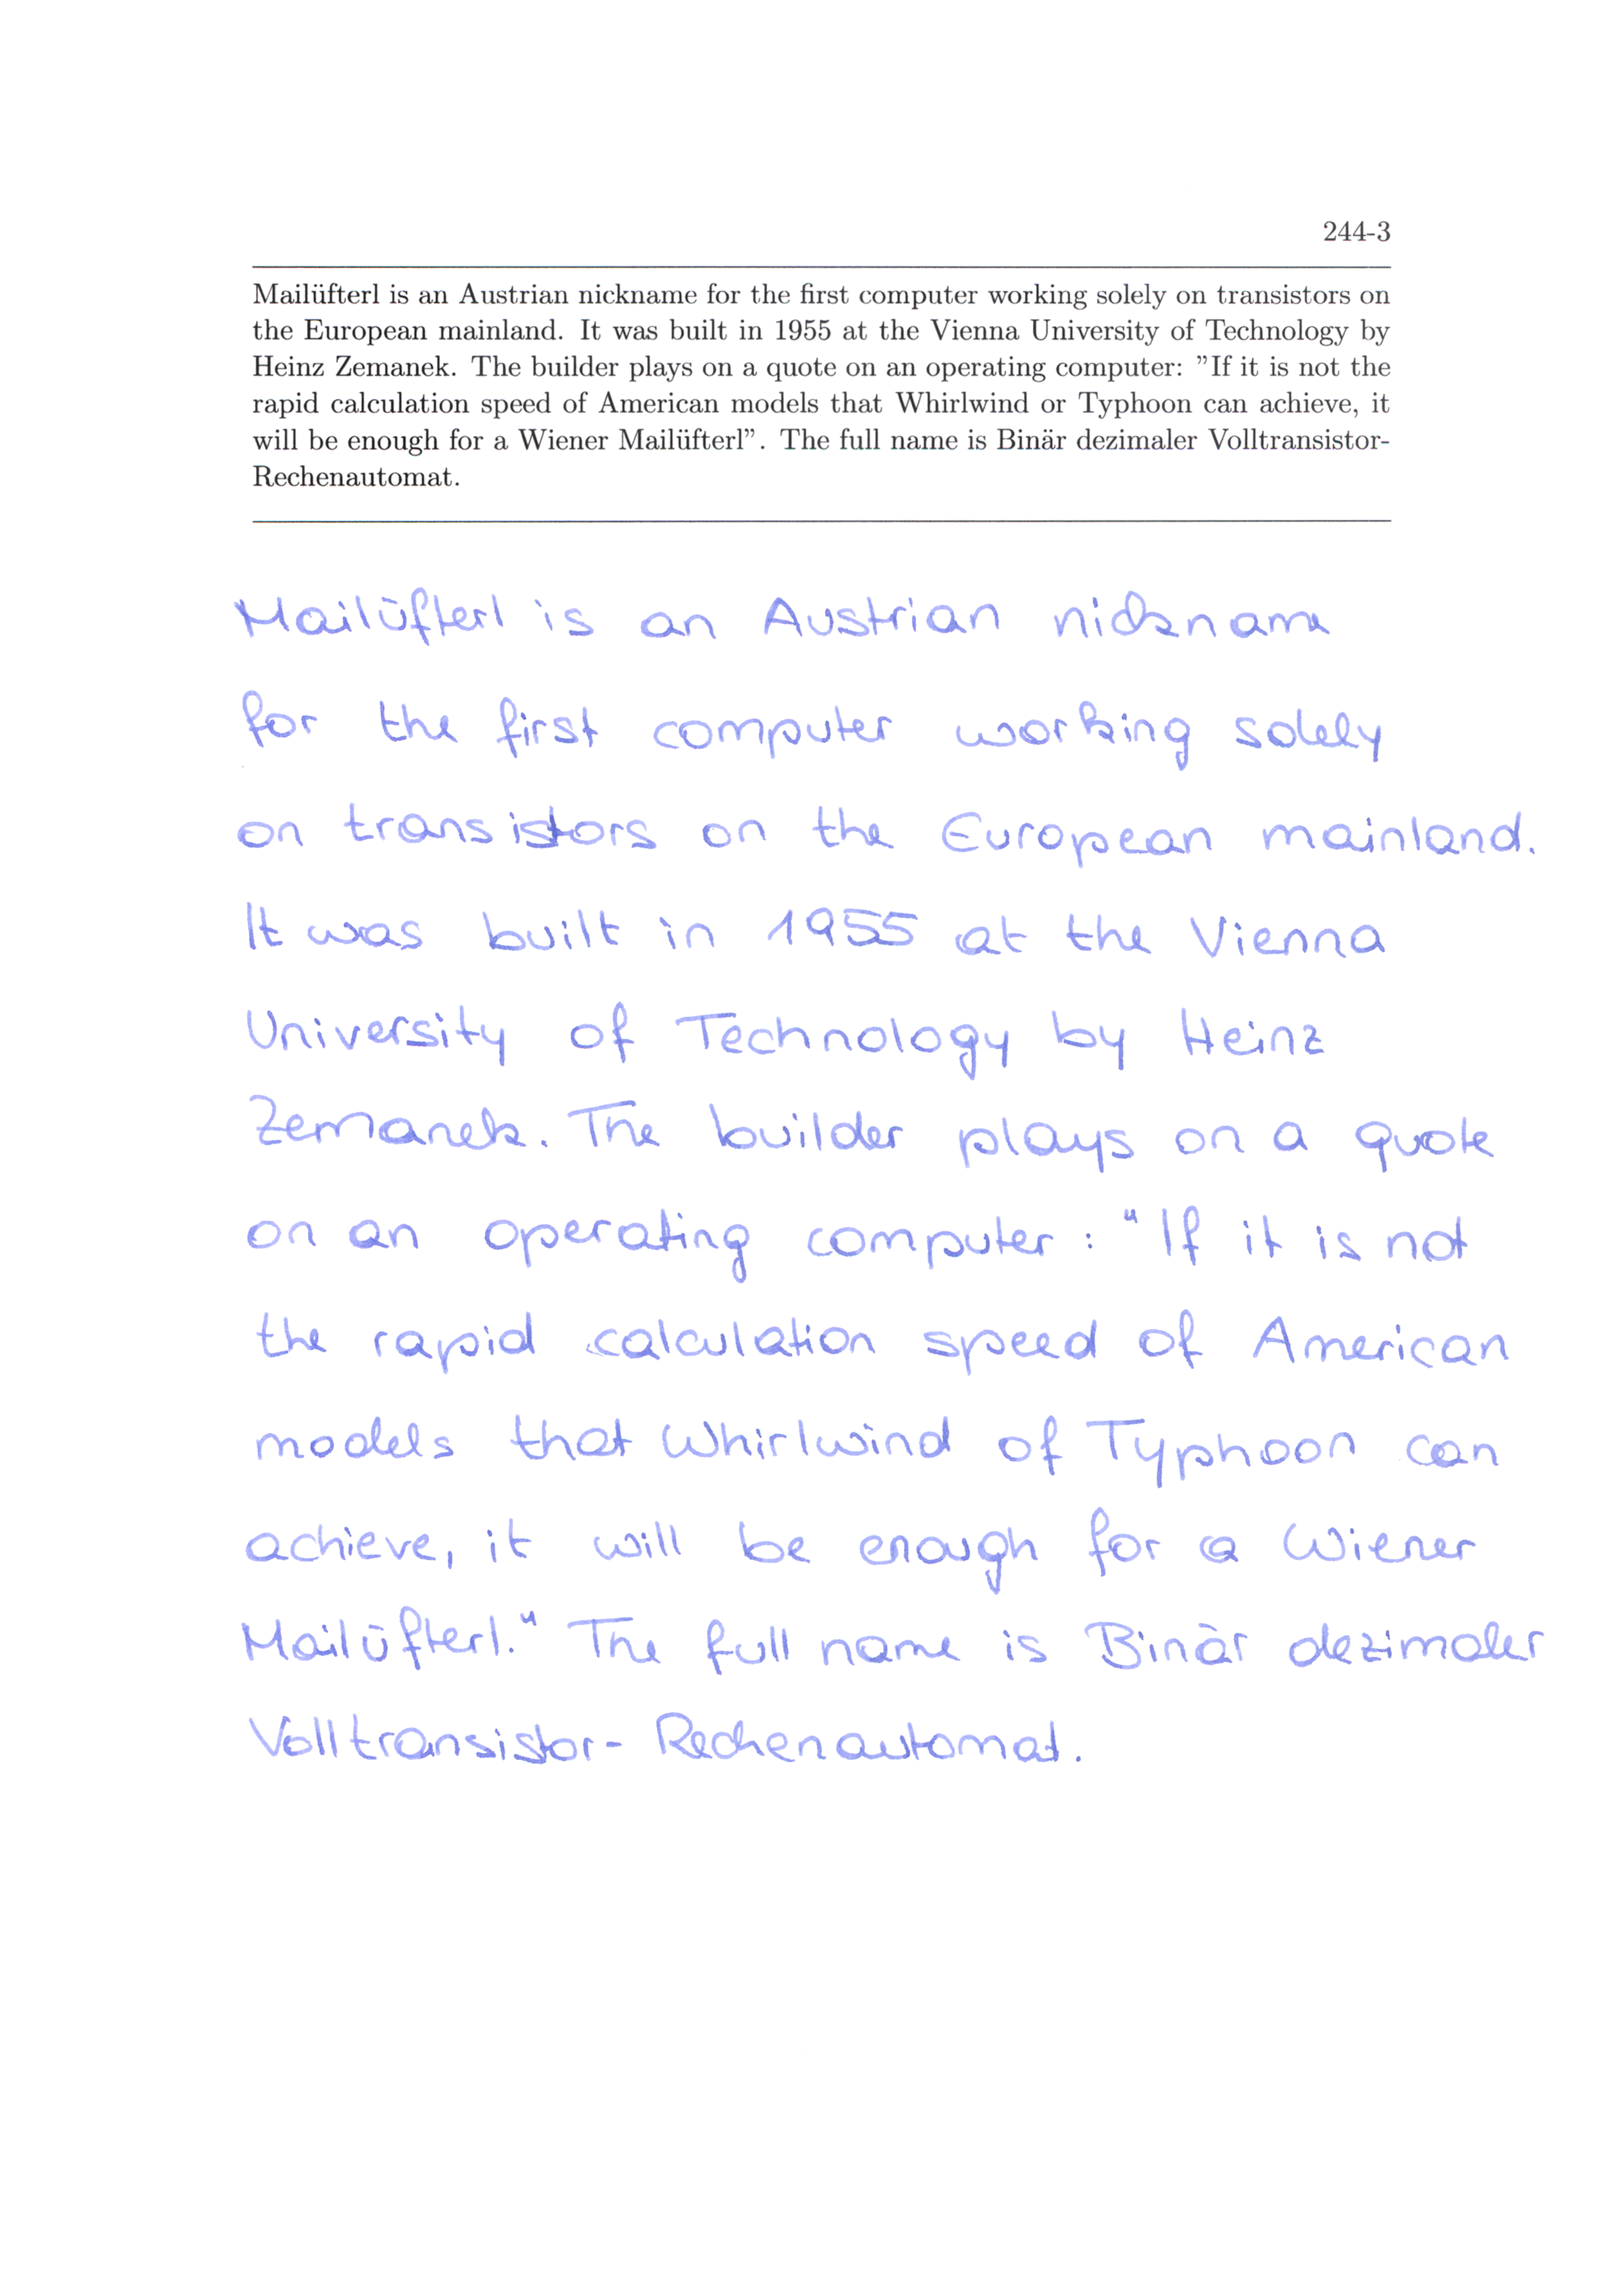 244-3
Mailüfterl is an Austrian nickname for the first computer working solely on transistors on
the European mainland. It was built in 1955 at the Vienna University of Technology by
Heinz Zemanek. The builder plays on a quote on an operating computer: ”If it is not the
rapid calculation speed of American models that Whirlwind or Typhoon can achieve, it
will be enough for a Wiener Mailüfterl”. The full name is Binär dezimaler Volltransistor-
Rechenautomat.
Mailüfterl is an Austrian nickname
for the first computer working solely
on transistors on the European mainland.
It was built in 1955 at the Vienna
University of Technology by Heinz
Zemanek. The builder plays on a quote
on an operating computer : "If it is not
the rapid calculation speed of American
models that Whirlwind of Typhoon can
achieve, it will be enough for a Wiener
Mailüfterl." The full name is Binär dezimaler
Volltransistor- Rechenautomat.